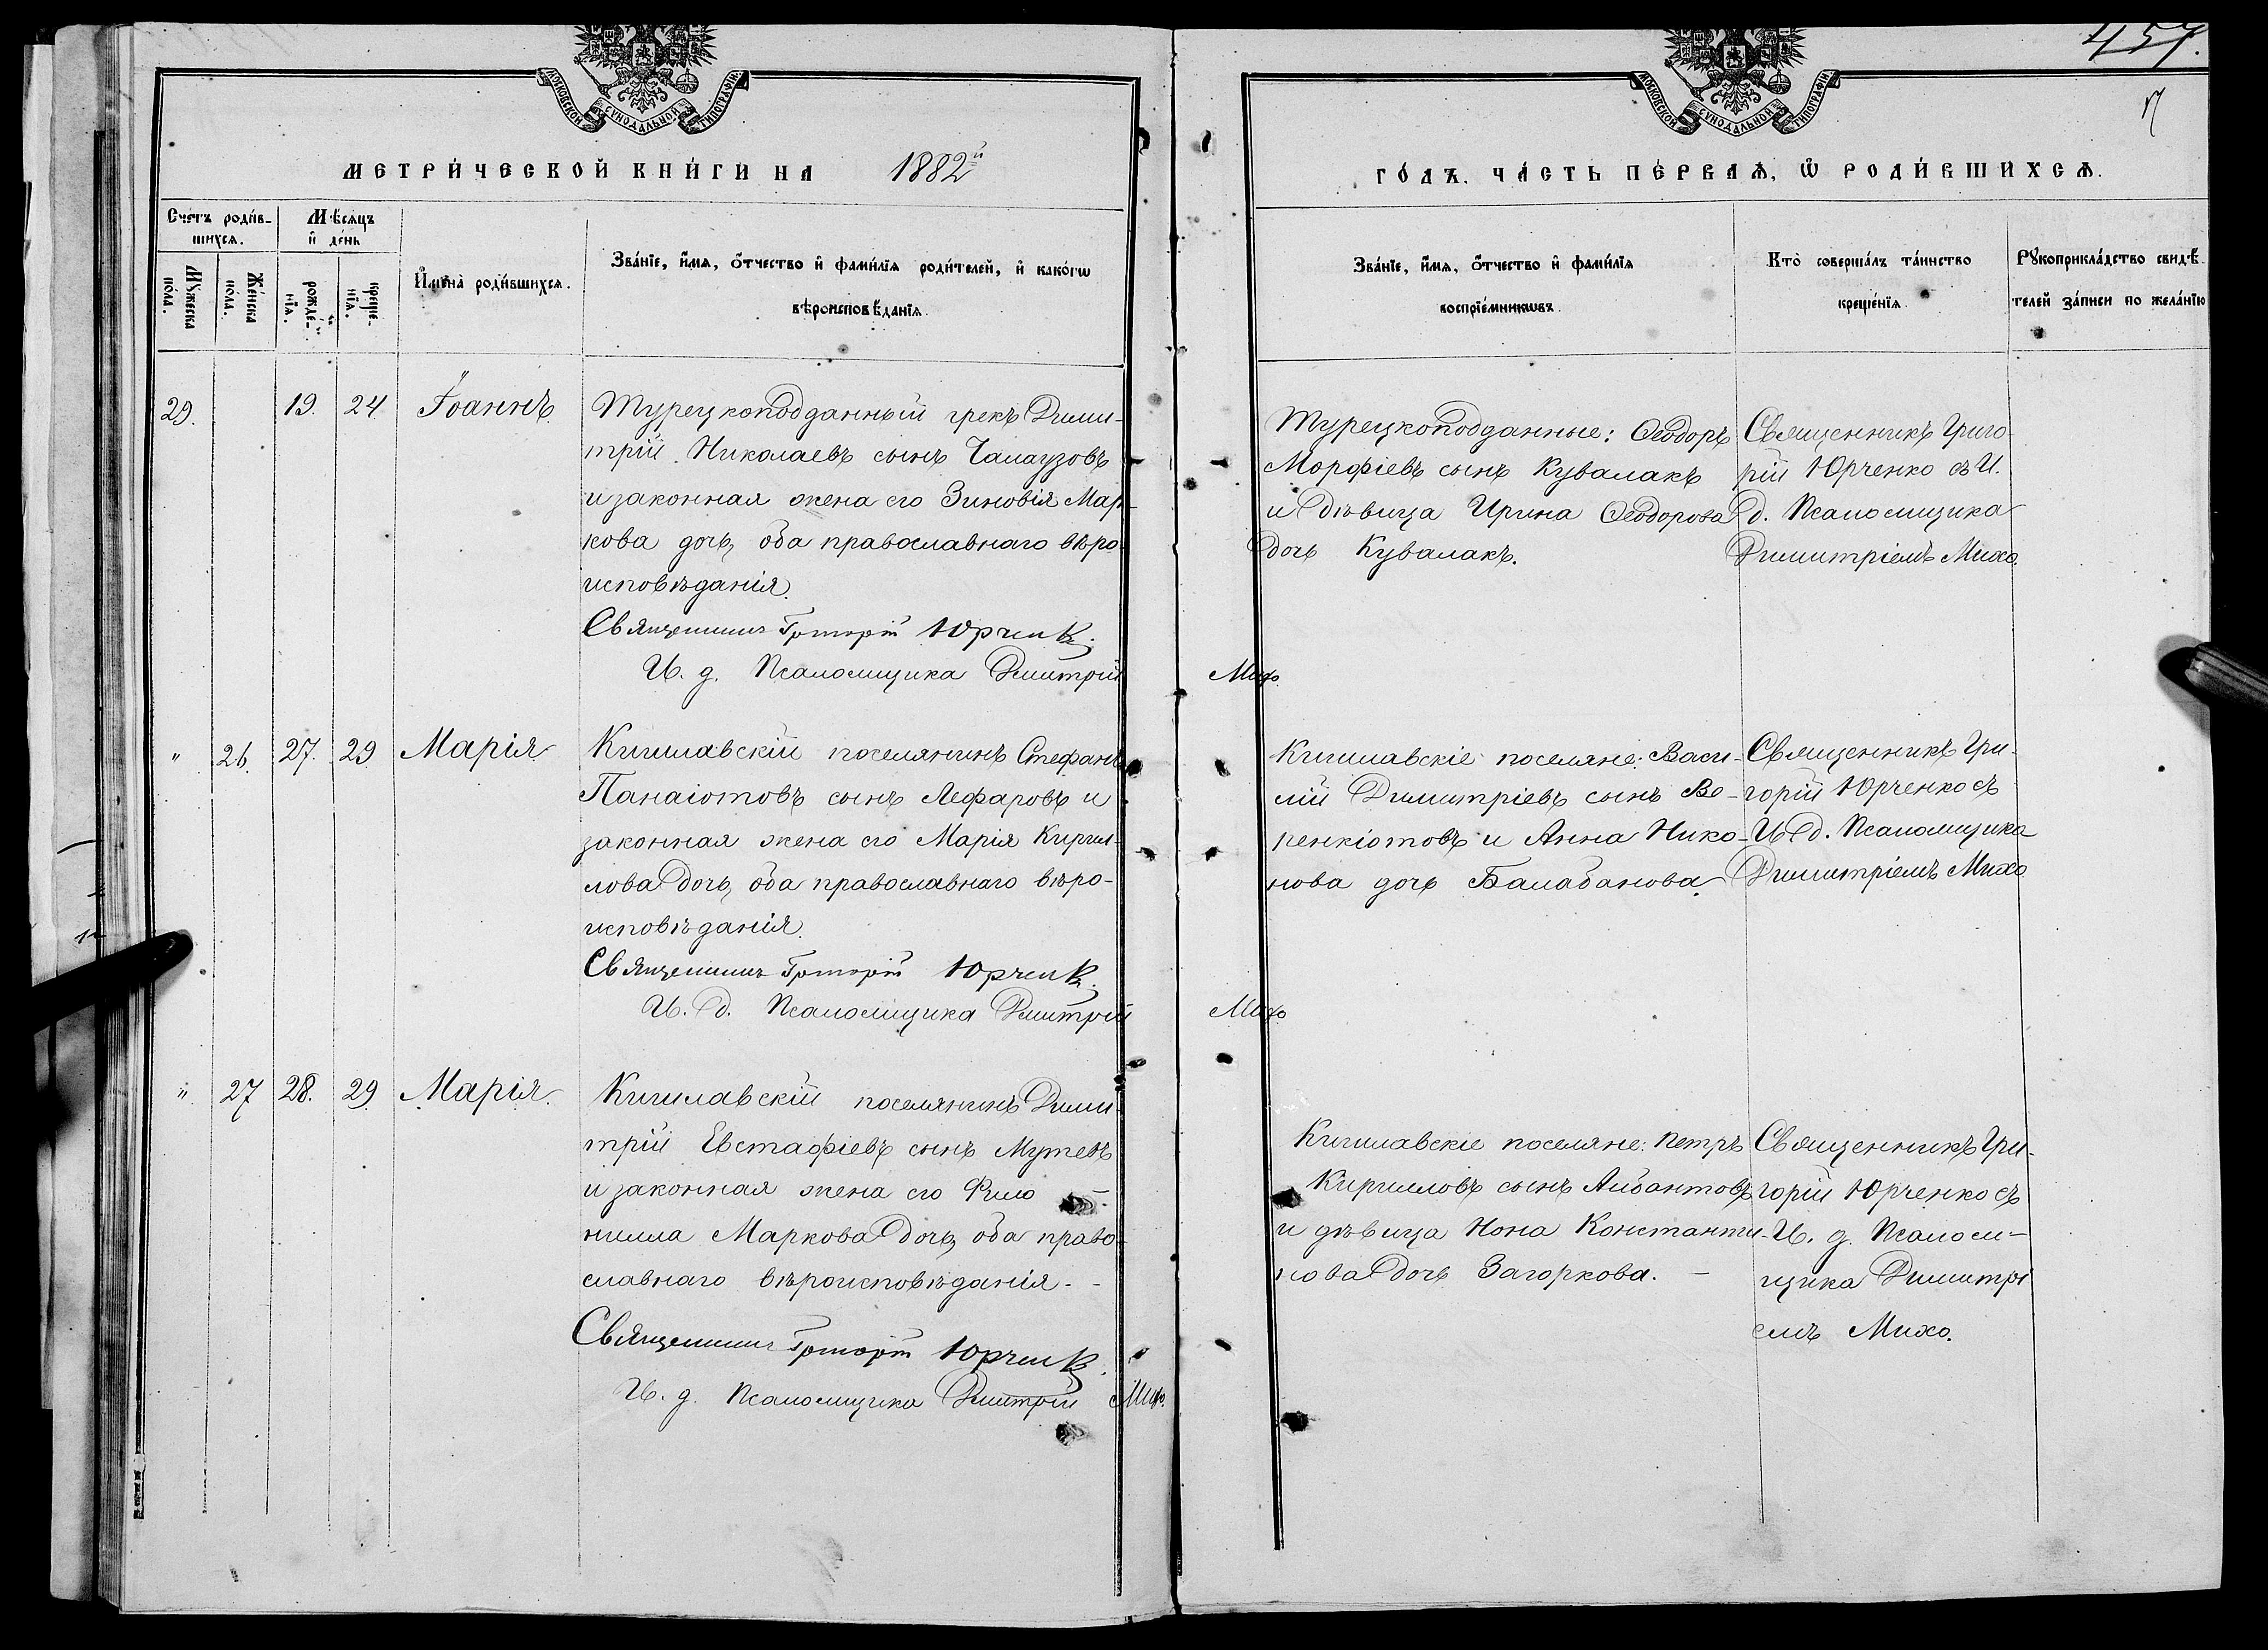 457.
МОСКОВСКОЙ СѴНОДАЛЬНОЙ ТИПОГРАФІИ
МОСКОВСКОЙ СѴНОДАЛЬНОЙ ТИПОГРАФІИ
МЕТРИ́ЧЕСКОЙ КНИ́ГИ НА 1882й
ГО́ДЪ. ЧА́СТЬ ПЕ́РВАѦ, Ѡ҆ РОДИ́ВШИХСѦ.
Счетъ роди́в-
шихсѧ.
Мѣ́сѧцъ
и҆ де́нь
Мꙋ́жеска
по́ла.
Же́нска
по́ла.
рожде́-
нїѧ.
креще́-
нїѧ.
И҆мена̀ роди́вшихсѧ.
Зва́нїе, и҆́мѧ, о҆́тчество и҆ фами́лїѧ роди́телей, и҆ како́гѡ
вѣроисповѣ́данїѧ.
Зва́нїе, и҆́мѧ, о҆́тчество и҆ фами́лїѧ
воспрїе́мникѡвъ.
Кто̀ соверша́лъ та́инство
креще́нїѧ.
Рꙋкоприкла́дство свидѣ́-
телей за́писи по жела́нїю
29. 19. 24 Іоаннъ.
Турецкоподданный грекъ Дими-
трій Николаевъ сынъ Чалаузовъ
и законная жена его Зиновія Мар-
кова дочь, оба православнаго вѣро-
исповѣданія.
Священникъ Григорій Юрченко.
И. д. Псаломщика Димитрій Михо.
Турецкоподданные: Ѳеодоръ
Морфіевъ сынъ Кувалакъ
и дѣвица Ирина Ѳеодорова
дочь Кувалакъ.
Священникъ Григо-
рій Юрченко съ И.
д. Псаломщика
Димитріемъ Михо.
" 26. 27. 29 Марія
Кишлавскій поселянинъ Стефанъ
Панаіотовъ сынъ Лефаровъ и
законная жена его Марія Кирил-
лова дочь, оба православнаго вѣро-
исповѣданія.
Священникъ Григорій Юрченко.
И. д. Псаломщика Димитрій Михо
Кишлавскіе поселяне: Васи-
лій Димитріевъ сынъ Во-
ренкіотовъ и Анна Нико-
нова дочь Балабанова.
Священникъ Гри-
горій Юрченко съ
И. д. Псаломщика
Димитріемъ Михо
" 27 28. 29. Марія.
Кишлавскій поселянинъ Дими-
трій Евстафіевъ сынъ Мутевъ
и законная жена его Фило-
нилла Маркова дочь, оба право-
славнаго вѣроисповѣданія. -
Священникъ Григорій Юрченко.
И. д. Псаломщика Димитрій Михо.
Кишлавскіе поселяне: Петръ
Кирилловъ сынъ Албантовъ
и дѣвица Нона Константи-
нова дочь Загоркова. —
Священникъ Гри-
горій Юрченко съ
И. д. Псалом-
щика Димитрі
емъ Михо.